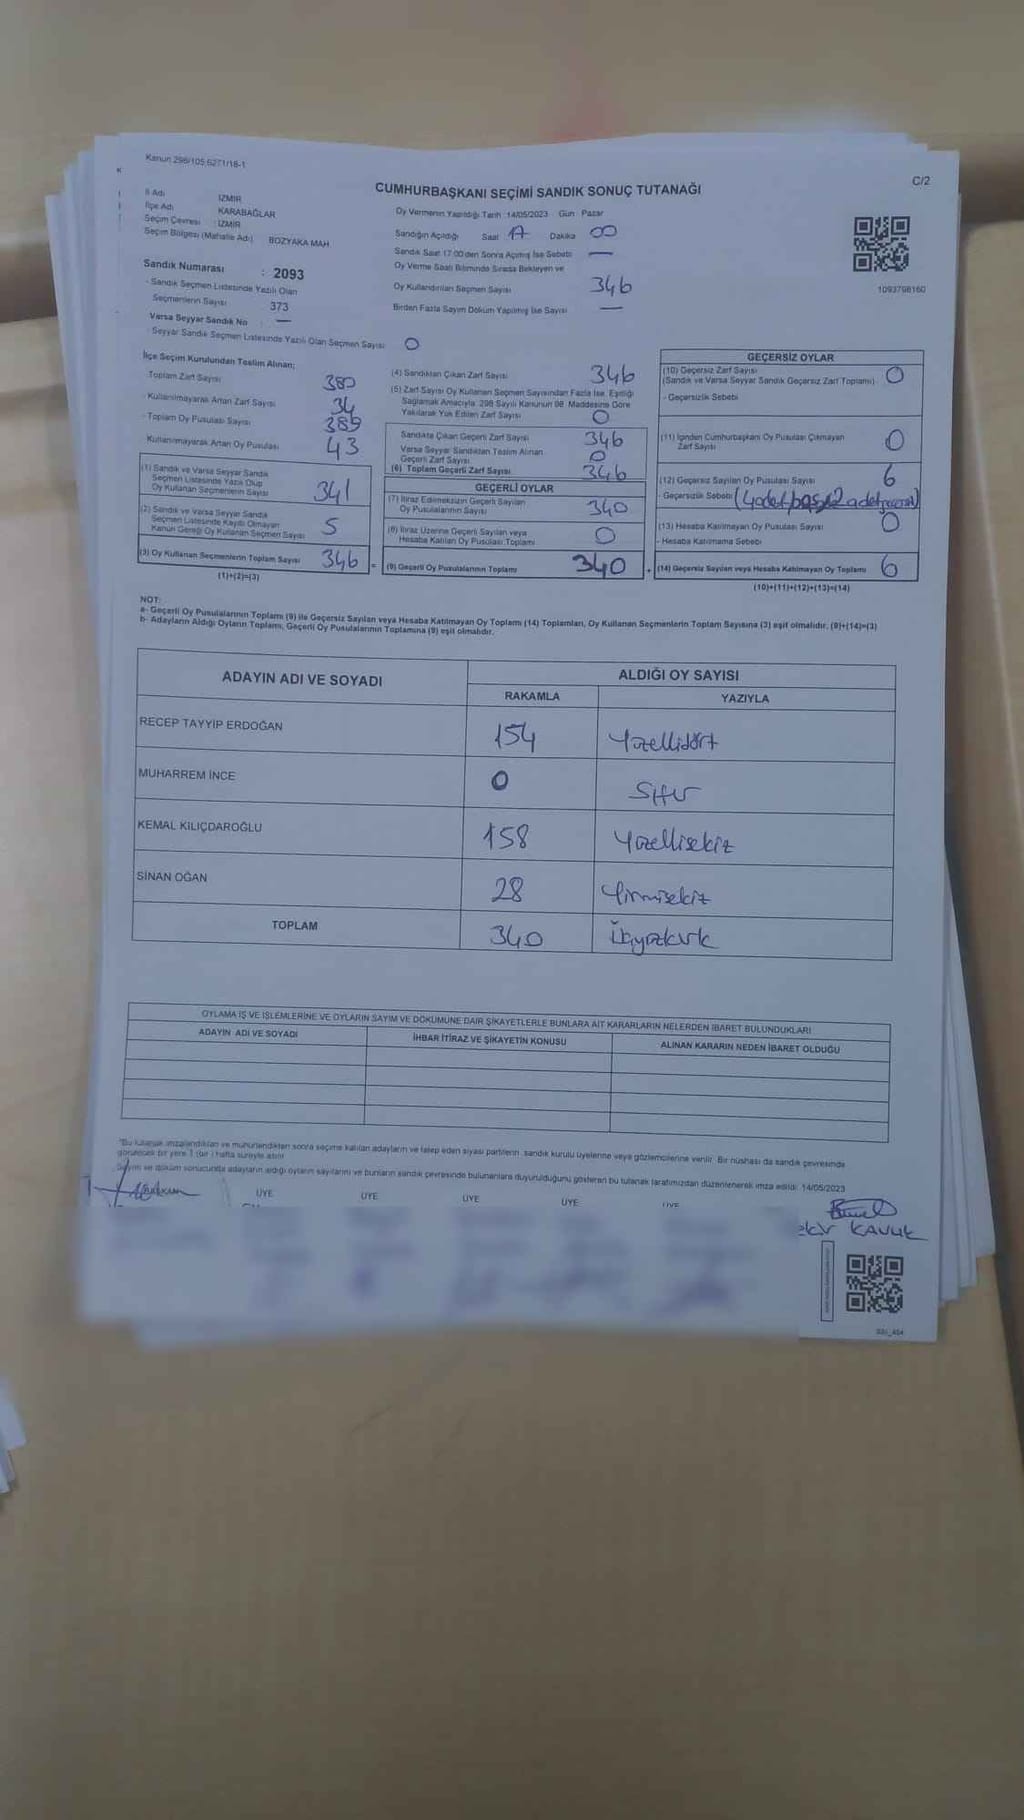 Kanun 298/105,6271/18-1
C/2
CUMHURBAŞKANI SEÇİMİ SANDIK SONUÇ TUTANAĞI
İl Adı İZMİR
İlçe Adı KARABAĞLAR
Seçim Çevresi : İZMİR
Seçim Bölgesi (Mahalle Adı) BOZYAKA MAH
Sandık Numarası : 2093
- Sandık Seçmen Listesinde Yazılı Olan
Seçmenlerin Sayısı 373
Varsa Seyyar Sandık No —
- Seyyar Sandık Seçmen Listesinde Yazılı Olan Seçmen Sayısı 0
Oy Vermenin Yapıldığı Tarih :14/05/2023 Gün Pazar
Sandığın Açıldığı Saat 17 Dakika 00
Sandık Saat 17:00'den Sonra Açılmış İse Sebebi —
Oy Verme Saati Bitiminde Sırada Bekleyen ve
Oy Kullandırılan Seçmen Sayısı 346
Birden Fazla Sayım Döküm Yapılmış İse Sayısı —
1093798160
İlçe Seçim Kurulundan Teslim Alınan;
Toplam Zarf Sayısı 380
- Kullanılmayarak Artan Zarf Sayısı 34
- Toplam Oy Pusulası Sayısı 389
Kullanılmayarak Artan Oy Pusulası 43
(1) Sandık ve Varsa Seyyar Sandık
Seçmen Listesinde Yazılı Olup
Oy Kullanan Seçmenlerin Sayısı 341
(2) Sandık ve Varsa Seyyar Sandık
Seçmen Listesinde Kayıtlı Olmayan
Kanun Gereği Oy Kullanan Seçmen Sayısı 5
(3) Oy Kullanan Seçmenlerin Toplam Sayısı 346
(1)+(2)=(3)
(4) Sandıktan Çıkan Zarf Sayısı 346
(5) Zarf Sayısı Oy Kullanan Seçmen Sayısından Fazla İse, Eşitliği
Sağlamak Amacıyla 298 Sayılı Kanunun 98. Maddesine Göre
Yakılarak Yok Edilen Zarf Sayısı 0
Sandıkta Çıkan Geçerli Zarf Sayısı 346
Varsa Seyyar Sandıktan Teslim Alınan
Geçerli Zarf Sayısı 0
(6) Toplam Geçerli Zarf Sayısı 346
GEÇERLİ OYLAR
(7) İtiraz Edilmeksizin Geçerli Sayılan
Oy Pusulalarının Sayısı 340
(8) İtiraz Üzerine Geçerli Sayılan veya
Hesaba Katılan Oy Pusulası Toplamı 0
(9) Geçerli Oy Pusulalarının Toplamı 340
GEÇERSİZ OYLAR
(10) Geçersiz Zarf Sayısı 0
(Sandık ve Varsa Seyyar Sandık Geçersiz Zarf Toplamı)
- Geçersizlik Sebebi
(11) İçinden Cumhurbaşkanı Oy Pusulası Çıkmayan
Zarf Sayısı 0
(12) Geçersiz Sayılan Oy Pusulası Sayısı 6
- Geçersizlik Sebebi
(13) Hesaba Katılmayan Oy Pusulası Sayısı 0
- Hesaba Katılmama Sebebi
(14) Geçersiz Sayılan veya Hesaba Katılmayan Oy Toplamı 6
(10)+(11)+(12)+(13)=(14)
NOT:
a- Geçerli Oy Pusulalarının Toplamı (9) ile Geçersiz Sayılan veya Hesaba Katılmayan Oy Toplamı (14) Toplamları, Oy Kullanan Seçmenlerin Toplam Sayısına (3) eşit olmalıdır. (9)+(14)=(3)
b- Adayların Aldığı Oyların Toplamı, Geçerli Oy Pusulalarının Toplamına (9) eşit olmalıdır.
ADAYIN ADI VE SOYADI ALDIĞI OY SAYISI
RAKAMLA YAZIYLA
RECEP TAYYİP ERDOĞAN 154 Yüzellidört
MUHARREM İNCE 0 Sıfır
KEMAL KILIÇDAROĞLU 158 Yüzellisekiz
SİNAN OĞAN 28 Yirmisekiz
TOPLAM 340 Üçyüzkırk
OYLAMA İŞ VE İŞLEMLERİNE VE OYLARIN SAYIM VE DÖKÜMÜNE DAİR ŞİKAYETLERLE BUNLARA AİT KARARLARIN NELERDEN İBARET BULUNDUKLARI
ADAYIN ADI VE SOYADI İHBAR İTİRAZ VE ŞİKAYETİN KONUSU ALINAN KARARIN NEDEN İBARET OLDUĞU
*Bu tutanak imzalandıktan ve mühürlendikten sonra seçime katılan adayların ve talep eden siyasi partilerin sandık kurulu üyelerine veya gözlemcilerine verilir. Bir nüshası da sandık çevresinde
görülecek bir yere 1 (bir ) hafta süreyle asılır
Sayım ve döküm sonucunda adayların aldığı oyların sayılarını ve bunların sandık çevresinde bulunanlara duyurulduğunu gösteren bu tutanak tarafımızdan düzenlenerek imza edildi. 14/05/2023
ÜYE ÜYE ÜYE ÜYE ÜYE
KAVUK